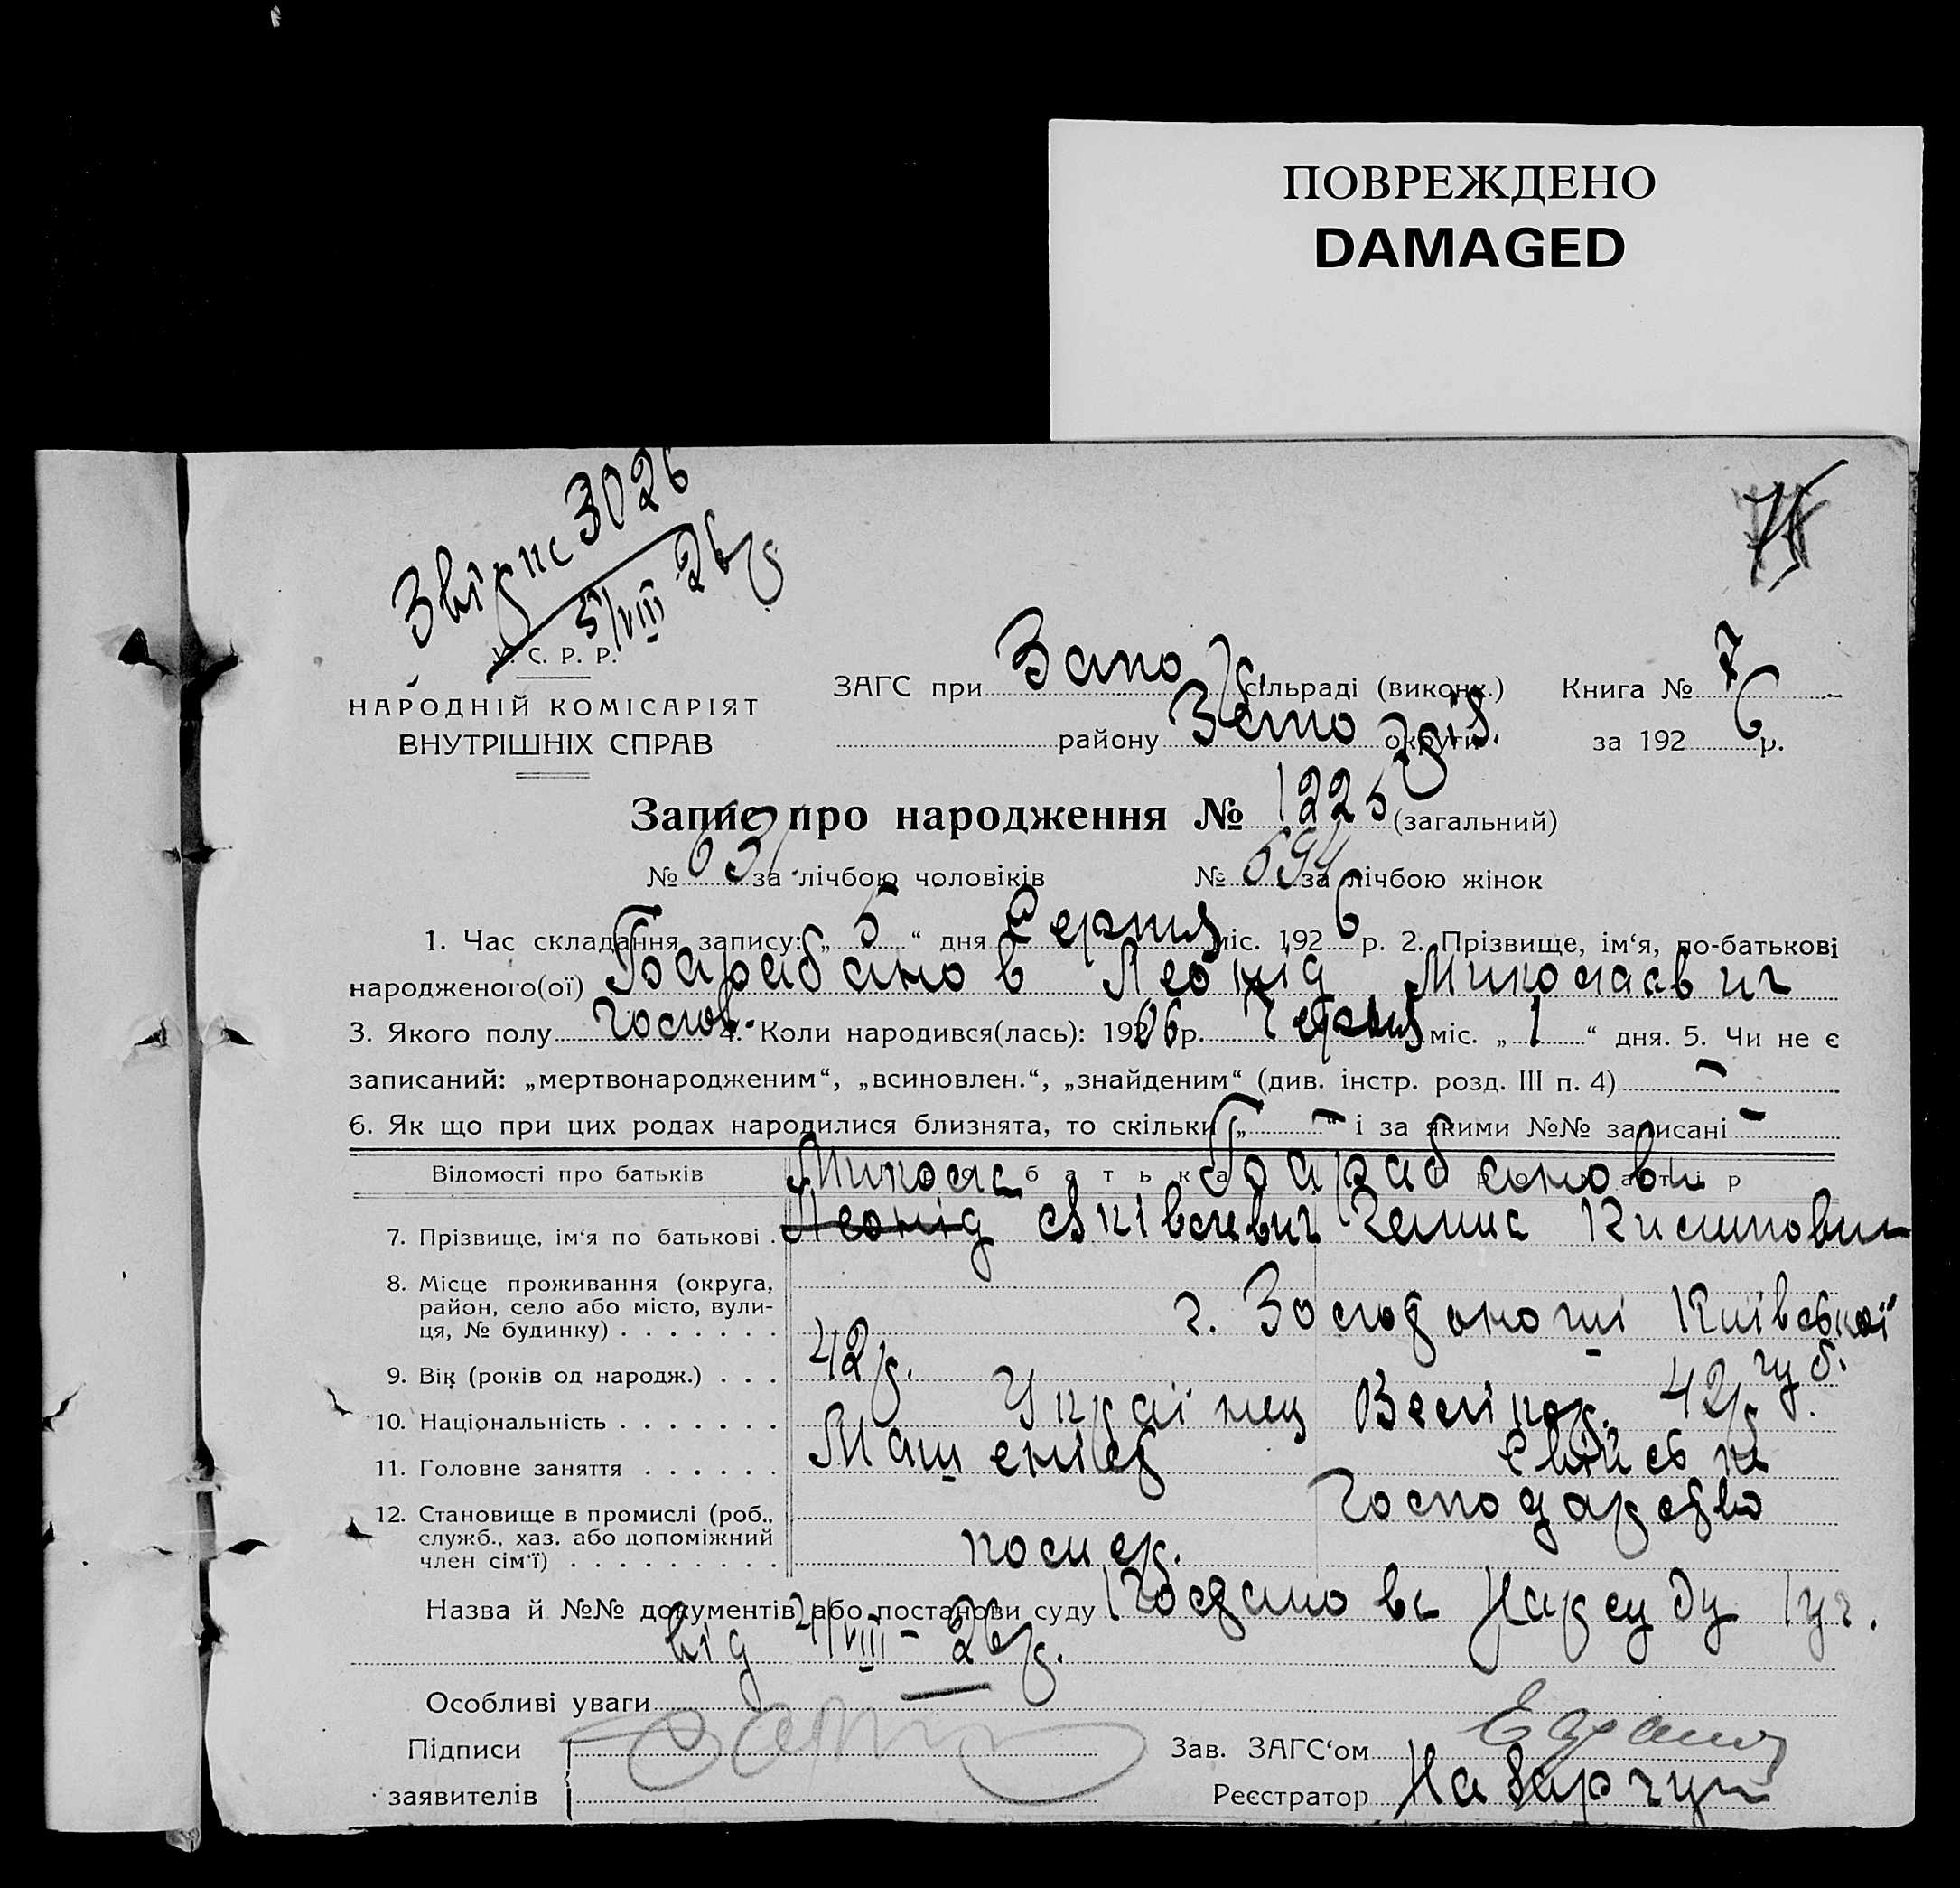 ПОВРЕЖДЕНО
DAMAGED
3026
5/VIII 26р
У. С. Р. Р.
НАРОДНІЙ КОМІСАРІЯТ
ВНУТРІШНІХ СПРАВ
ЗАГС при Запо сільраді (виконк.) Книга № 7
району Запо округи за 1926 р.
Запис про народження № 1225 (загальний)
№ 631 за лічбою чоловіків № 594 за лічбою жінок
1. Час складання запису: „ 5 “ дня Серпня міс. 1926 р. 2. Прізвище, ім‘я, по-батькові
народженого(ої) Барабанов Леонід Миколаєвич
3. Якого полу 4. Коли народився(лась): 1906 р. Червня міс. „ 1 “ дня. 5. Чи не є
записаний: „мертвонародженим“, „всиновлен.“, „знайденим“ (див. інстр. розд. III п. 4) –
6. Як що при цих родах народилися близнята, то скільки „ – “ і за якими №№ записані –
Відомості про батьків батька матір
Микола Барабанови
7. Прізвище, ім‘я по батькові Леонід
8. Місце проживання (округа, район, село або місто, вулиця, № будинку) г. Золотоноші Київської
губ.
9. Вік (років од народж.) 42р. 42р
10. Національність Українец Велікор.
11. Головне заняття Машеніст
Господарство
12. Становище в промислі (роб., служб., хаз. або допоміжний член сім‘ї)
Назва й №№ документів або постанови суду Нарсуду 1 уч.
від 4/VIII – 26р.
Особливі уваги
Підписи
заявителів
Зав. ЗАГС‘ом
Реєстратор Назарчук